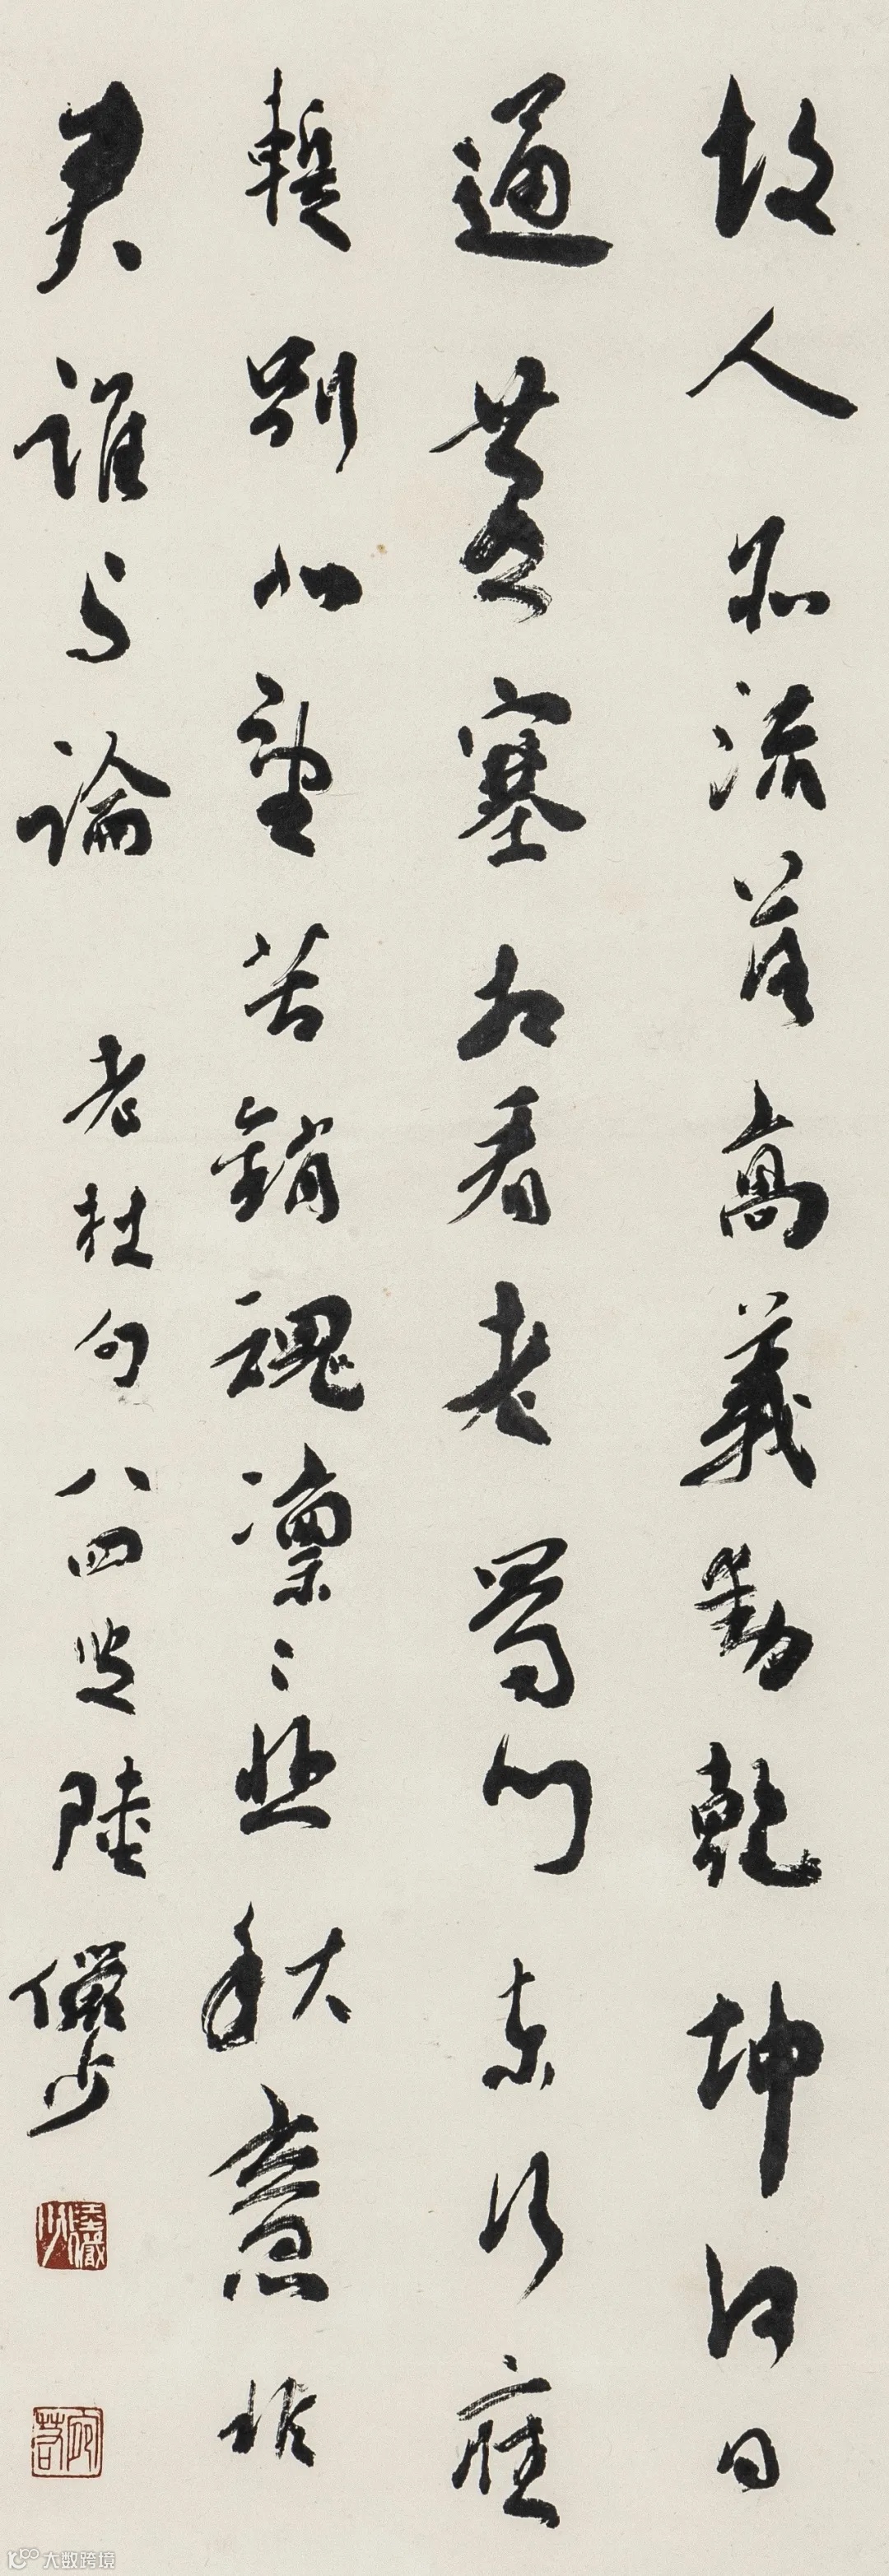 故人亦流落高義動乾坤何日
通燕塞相看老蜀門東行應
暫別北望苦銷魂凛〻悲秋意非
君誰与論 老杜句 八四叟陸儼少
陸儼少
宛若
大数跨境